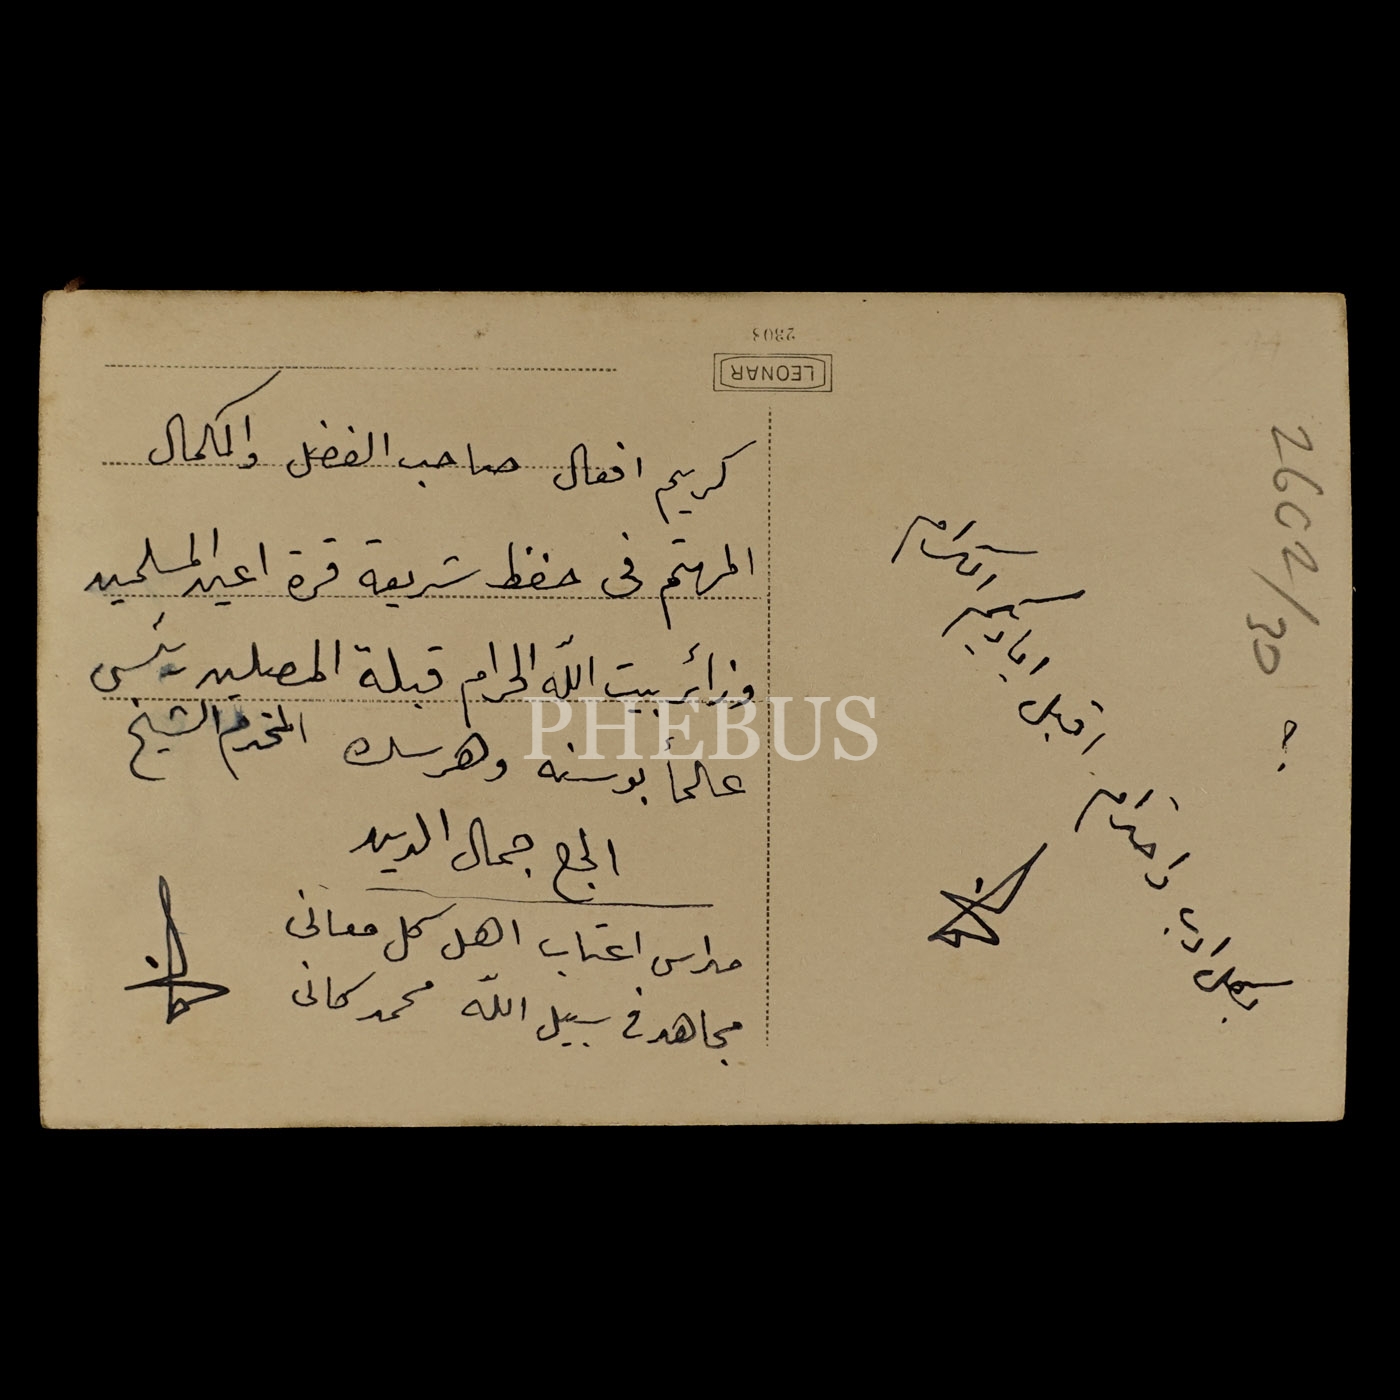 2303
LEONAR
كريم افعال صاحب الفضل والكمال
المهتم فى حفظ شريعة قرة اعين المسلمين
وزائر بيت الله الحرام قبلة المصلين رئيس
علماً بوسنه وهرسك المحترم الشيخ
الحج جمال الدين
مداس اعتاب اهل كل معانى
مجاهد فى سبيل الله محمد كانى
بكمال ادب واحترام
اقبل اياديكم الكرام
2602/30
?
PHEBUS